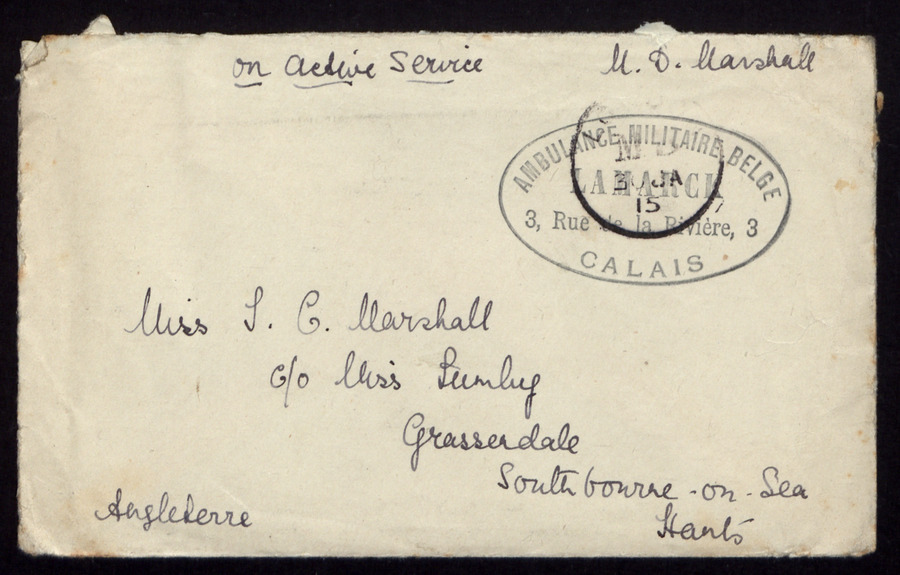 on Active Service M. D. Marshall
AMBULANCE MILITAIRE BELGE
LAMARCK
3, Rue de la Rivière, 3
CALAIS
3 JA
15
Miss J. C. Marshall
c/o Miss Lumby
Grasserdale
Southbourne-on-Sea
Hants
Angleterre